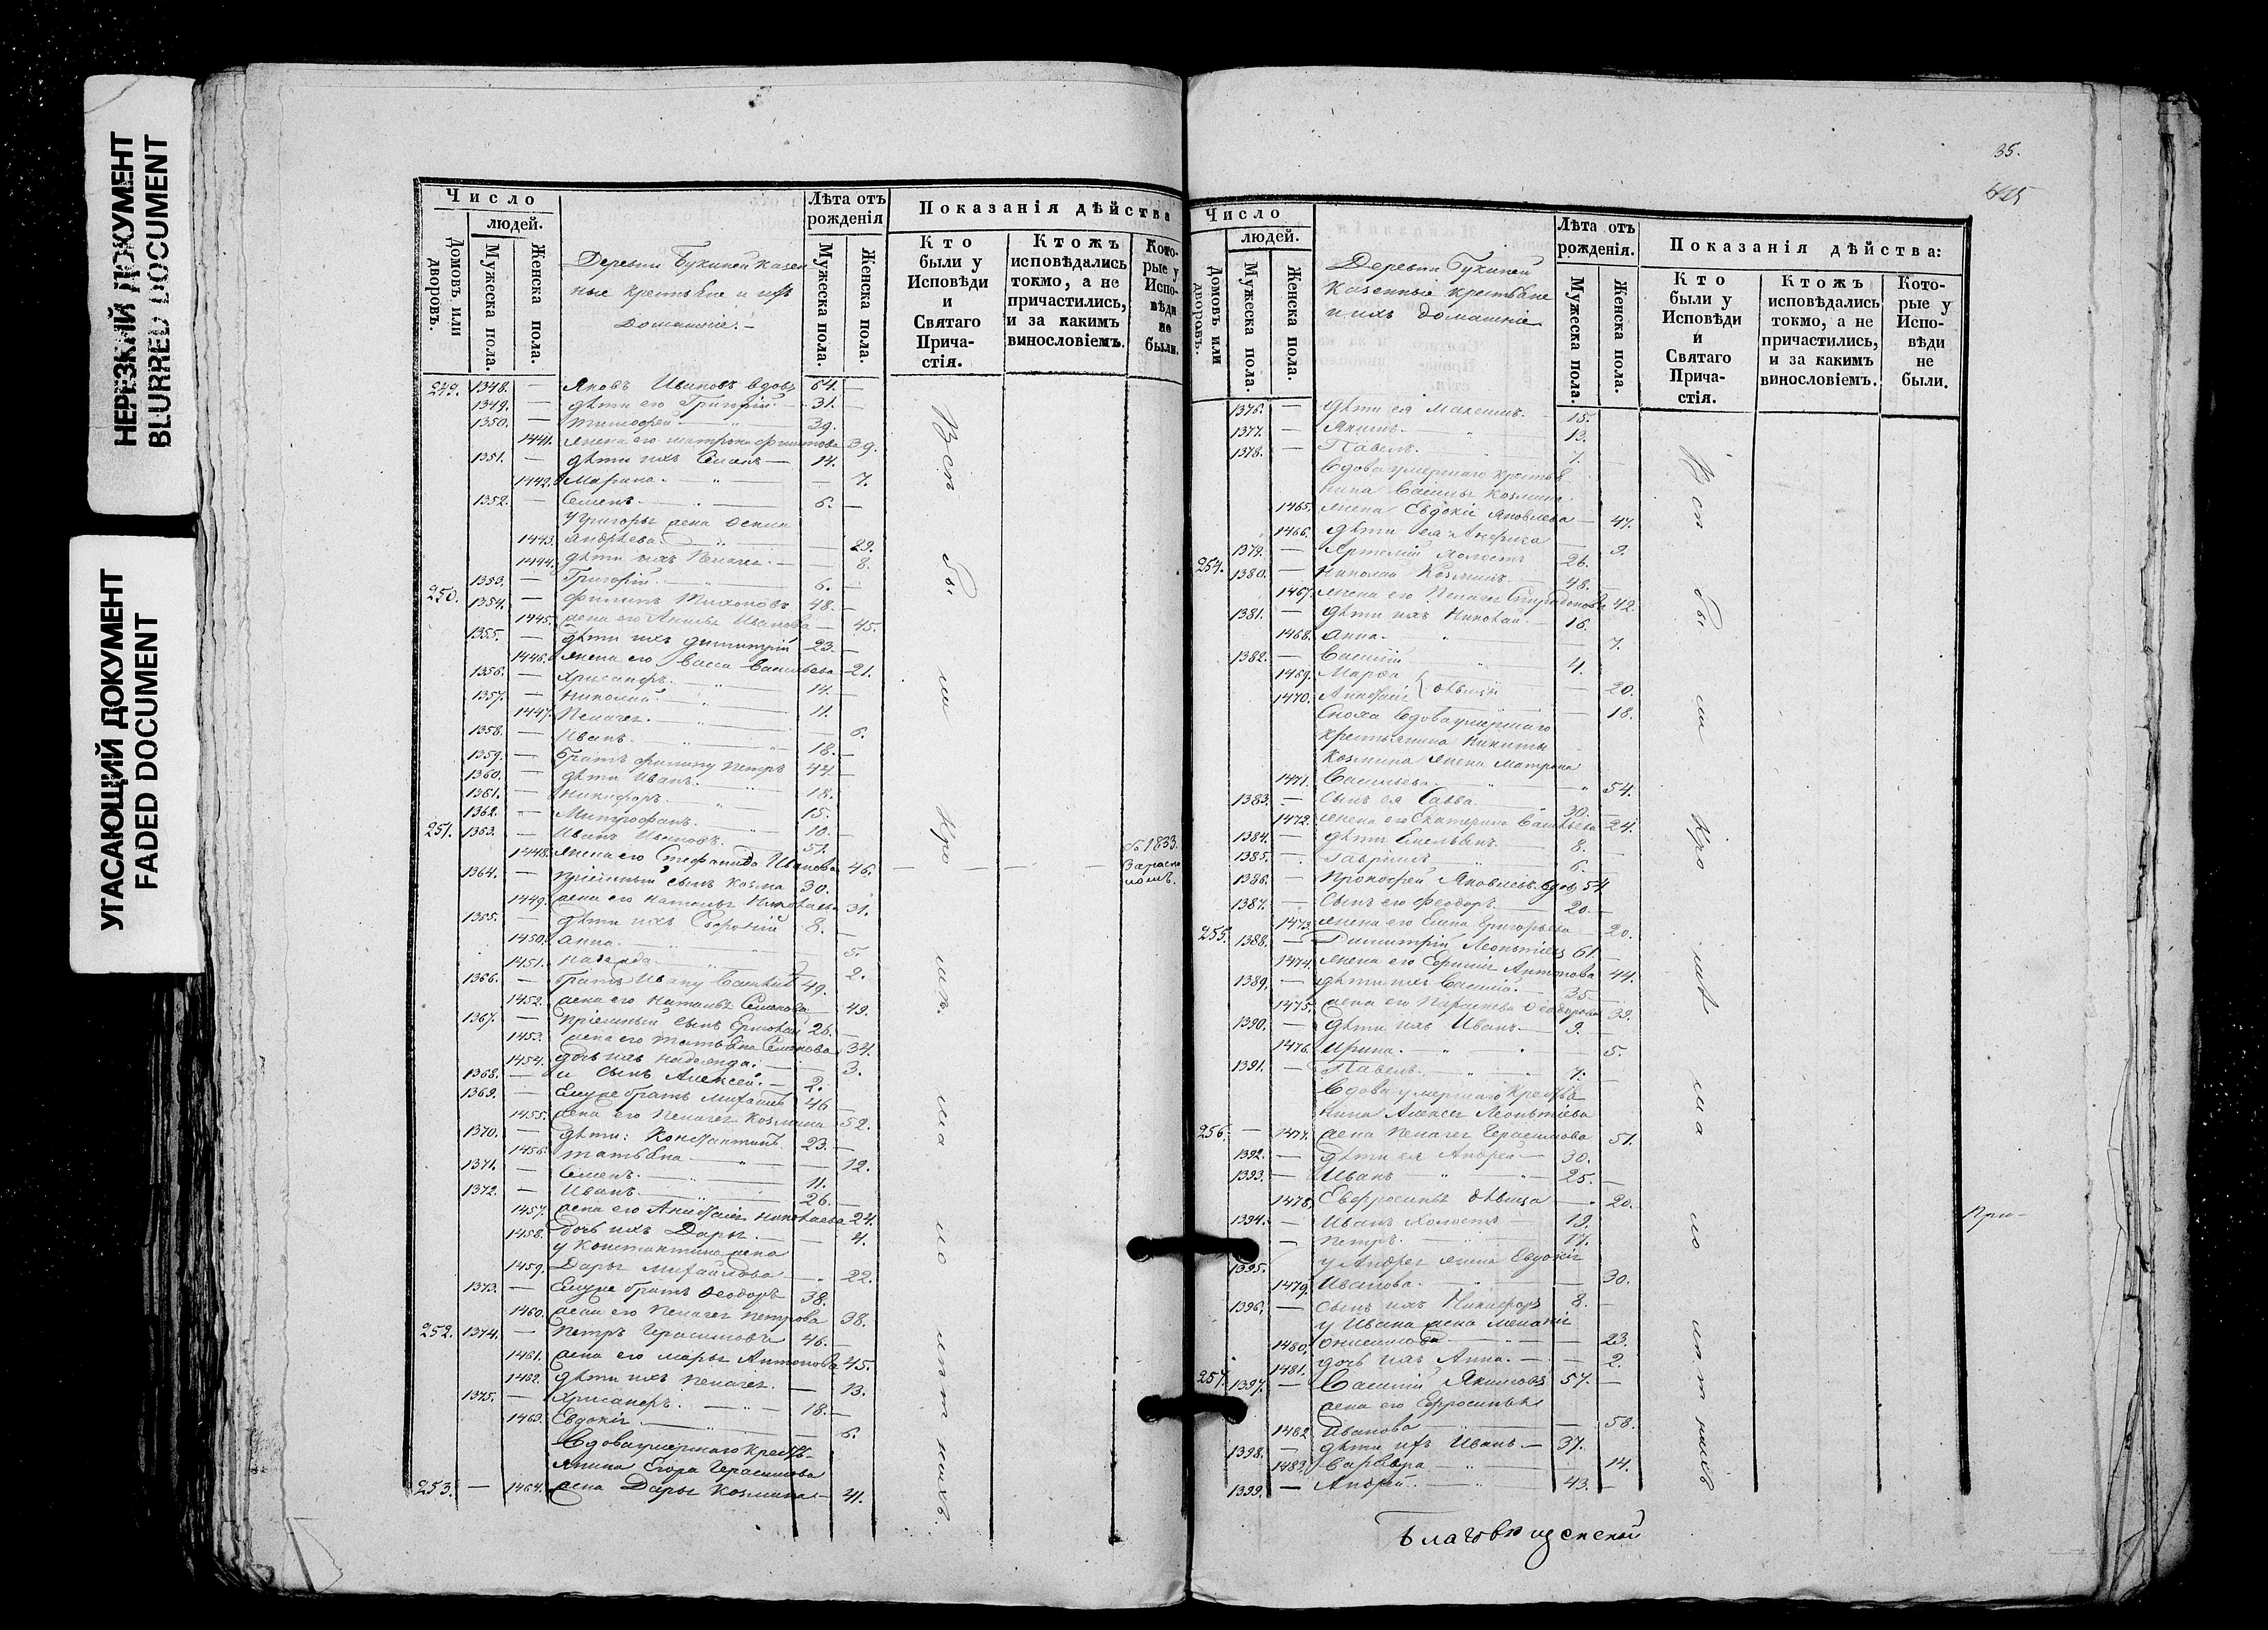 НЕРЕЗКИЙ ДОКУМЕНТ
BLURRED DOCUMENT
УГАСАЮЩИЙ ДОКУМЕНТ
FADED DOCUMENT
Число
людей.
Домовъ или дворовъ.
Мужеска пола.
Женска пола.
Деревни Букиной казен
ные крестьяне и ихъ
домашніе.
Лѣта отъ рожденія
Мужеска пола.
Женска пола.
Показанія дѣйства
Кто были у Исповѣди и Святаго Причастія.
Ктожъ исповѣдались токмо, а не причастились, и за какимъ винословіемъ.
Которые у Исповѣди не были.
249. 1348. — Яковъ Ивановъ вдовъ 64. —
1349. — дѣти его Григорій. — 31. —
1350. — Тимофей 39. —
1441. жена его Матрона Филипова 39.
1351. — дѣти ихъ Семенъ — 14. —
1442. Марина. — 7.
1352. — Семенъ. 6. —
У Григорья жена
1443. Андреева. — 29.
1444. дѣти ихъ Пелагея — 8.
1353. — Григорій. 6. —
250. 1354. — Филипъ Тихоновъ 48. —
1445. жена его Анисья Иванова — 45.
1355. — дѣти ихъ Димитрій 23. —
1446. жена его Васса Васильева 21.
1356. — Хрисанфъ. 14. —
1357. — Николай. 11. —
1447. Пелагея. — 6.
1358. — Иванъ. 18. —
1359. — Братъ Филипу Петръ 44. —
1360. — дѣти Иванъ. 18. —
1361. — Никифоръ. 15. —
1362. — Митрофанъ. 10. —
251. 1363. — Иванъ Ивановъ. 51. —
1448. жена его Стефанида Иванова 46. — — — Съ 1833. За раско ломъ.
1364. — пріемный сынъ Козма 30.
1449. жена его Наталья Николаева 31.
1365. — дѣти ихъ 8. —
1450. Анна. — 5.
1451. Надежда. — 2.
1366. — Братъ Ивану Василій 49. —
1452. жена его Наталья Семенова 49.
1367. — пріемный сынъ Ермолай 26. —
1453. жена его Татьяна Семенова 34.
1454. дочь ихъ Надежда. — 3.
1368. — и сынъ Алексей. — 2. —
1369. — Ему же братъ Михаилъ 46 —
1455. жена его Пелагея Козмина 52.
1370. — дѣти: Константинъ 23. —
1456. Татьяна — 12.
1371. — Семенъ. 11. —
1372. — Иванъ. 26. —
1457. жена его Анастасія Николаева 24.
1458. дочь ихъ Дарья. — 4.
у Константина жена
1459. Дарья Михайлова — 22.
1373. — Ему же братъ Феодоръ 38.
1460. жена его Пелагея Петрова 38.
252. 1374. — Петръ Герасимовъ 46. —
1461. жена его Марья Антонова 45.
1462. дѣти ихъ Пелагея. — 13.
1375. — Хрисанфъ. 18. —
1463. Евдокія. — 6.
Вдова умершаго кресть-
янина Егора Герасимова
253. — 1464. жена Дарья Козмина — 41.
35.
Число
людей.
Домовъ или дворовъ.
Мужеска пола.
Женска пола.
Деревни Букиной
казенные крестьяне
и ихъ домашніе
Лѣта отъ рожденія.
Мужеска пола.
Женска пола.
Показанія дѣйства:
Кто были у Исповѣди и Святаго Причастія.
Ктожъ исповѣдались токмо, а не причастились, и за какимъ винословіемъ.
Которые у Исповѣди не были.
1376. — дѣти ея Максимъ. 15.
1377. — Якимъ. 13.
1378. — Павелъ. 7. —
Вдова умершаго крестья
нина Козмина
1465. жена Евдокія Яковлева — 47.
1466. дѣти ея — 9.
1379. — Артемій холостъ 26.
254. 1380. — Николай Козминъ. 48. —
1467. жена его Пелагея Спиридонова 42.
1381. — дѣти ихъ Николай. 16.
1468. Анна. — 7.
1382. — Василій 4.
1469. Марфа — 20.
1470. Анастасія } дѣвицы — 18.
Сноха вдова умершаго
крестьянина Никиты
Козмина жена Матрона
1471. Васильева. 54.
1383. — сынъ ея Савва 30. —
1472. жена его Екатерина Васильева 24.
1384. — дѣти Емельянъ. 8. —
1385. — Гаврилъ 6. —
1386. — Прокофей Яковлевъ вдовъ 54
1387. — Сынъ его Феодоръ. 20. —
1473. жена его Елена Григорьева — 20.
255. 1388. — Димитрій Леонтіевъ 61. —
1474. жена его Антонова 44.
1389. — дѣти ихъ Василій. 35 —
1475. жена его Параскева Феодорова 39.
1390. — дѣти ихъ Иванъ — 9. —
1476. Ирина. — 5.
1391. — Павелъ. 7. —
Вдова умершаго крестья
нина Алексея Леонтіева
256. — 1477. жена Пелагея Герасимова 51.
1392. — дѣти ея Андрей — 30. —
1393. — Иванъ 25. —
1478. Евфросинья дѣвица — 20.
1394. — Иванъ холостъ — 19. —
1395. — Петръ. 17.
у Андрея жена Евдокія
1479. Иванова. — 30.
1396. — сынъ ихъ Никифоръ 8. —
у Ивана жена Меланія
1480. Онисимова — 23.
1481. дочь ихъ Анна. — 2.
257. 1397. — Василій Якимовъ 57. —
жена его Ефросинья
1482. Иванова — 58.
1398. — дѣти ихъ Иванъ — 37. —
1483. Варвара — 14.
1399. — Андрей. 43. —
При-
Благовѣщенской